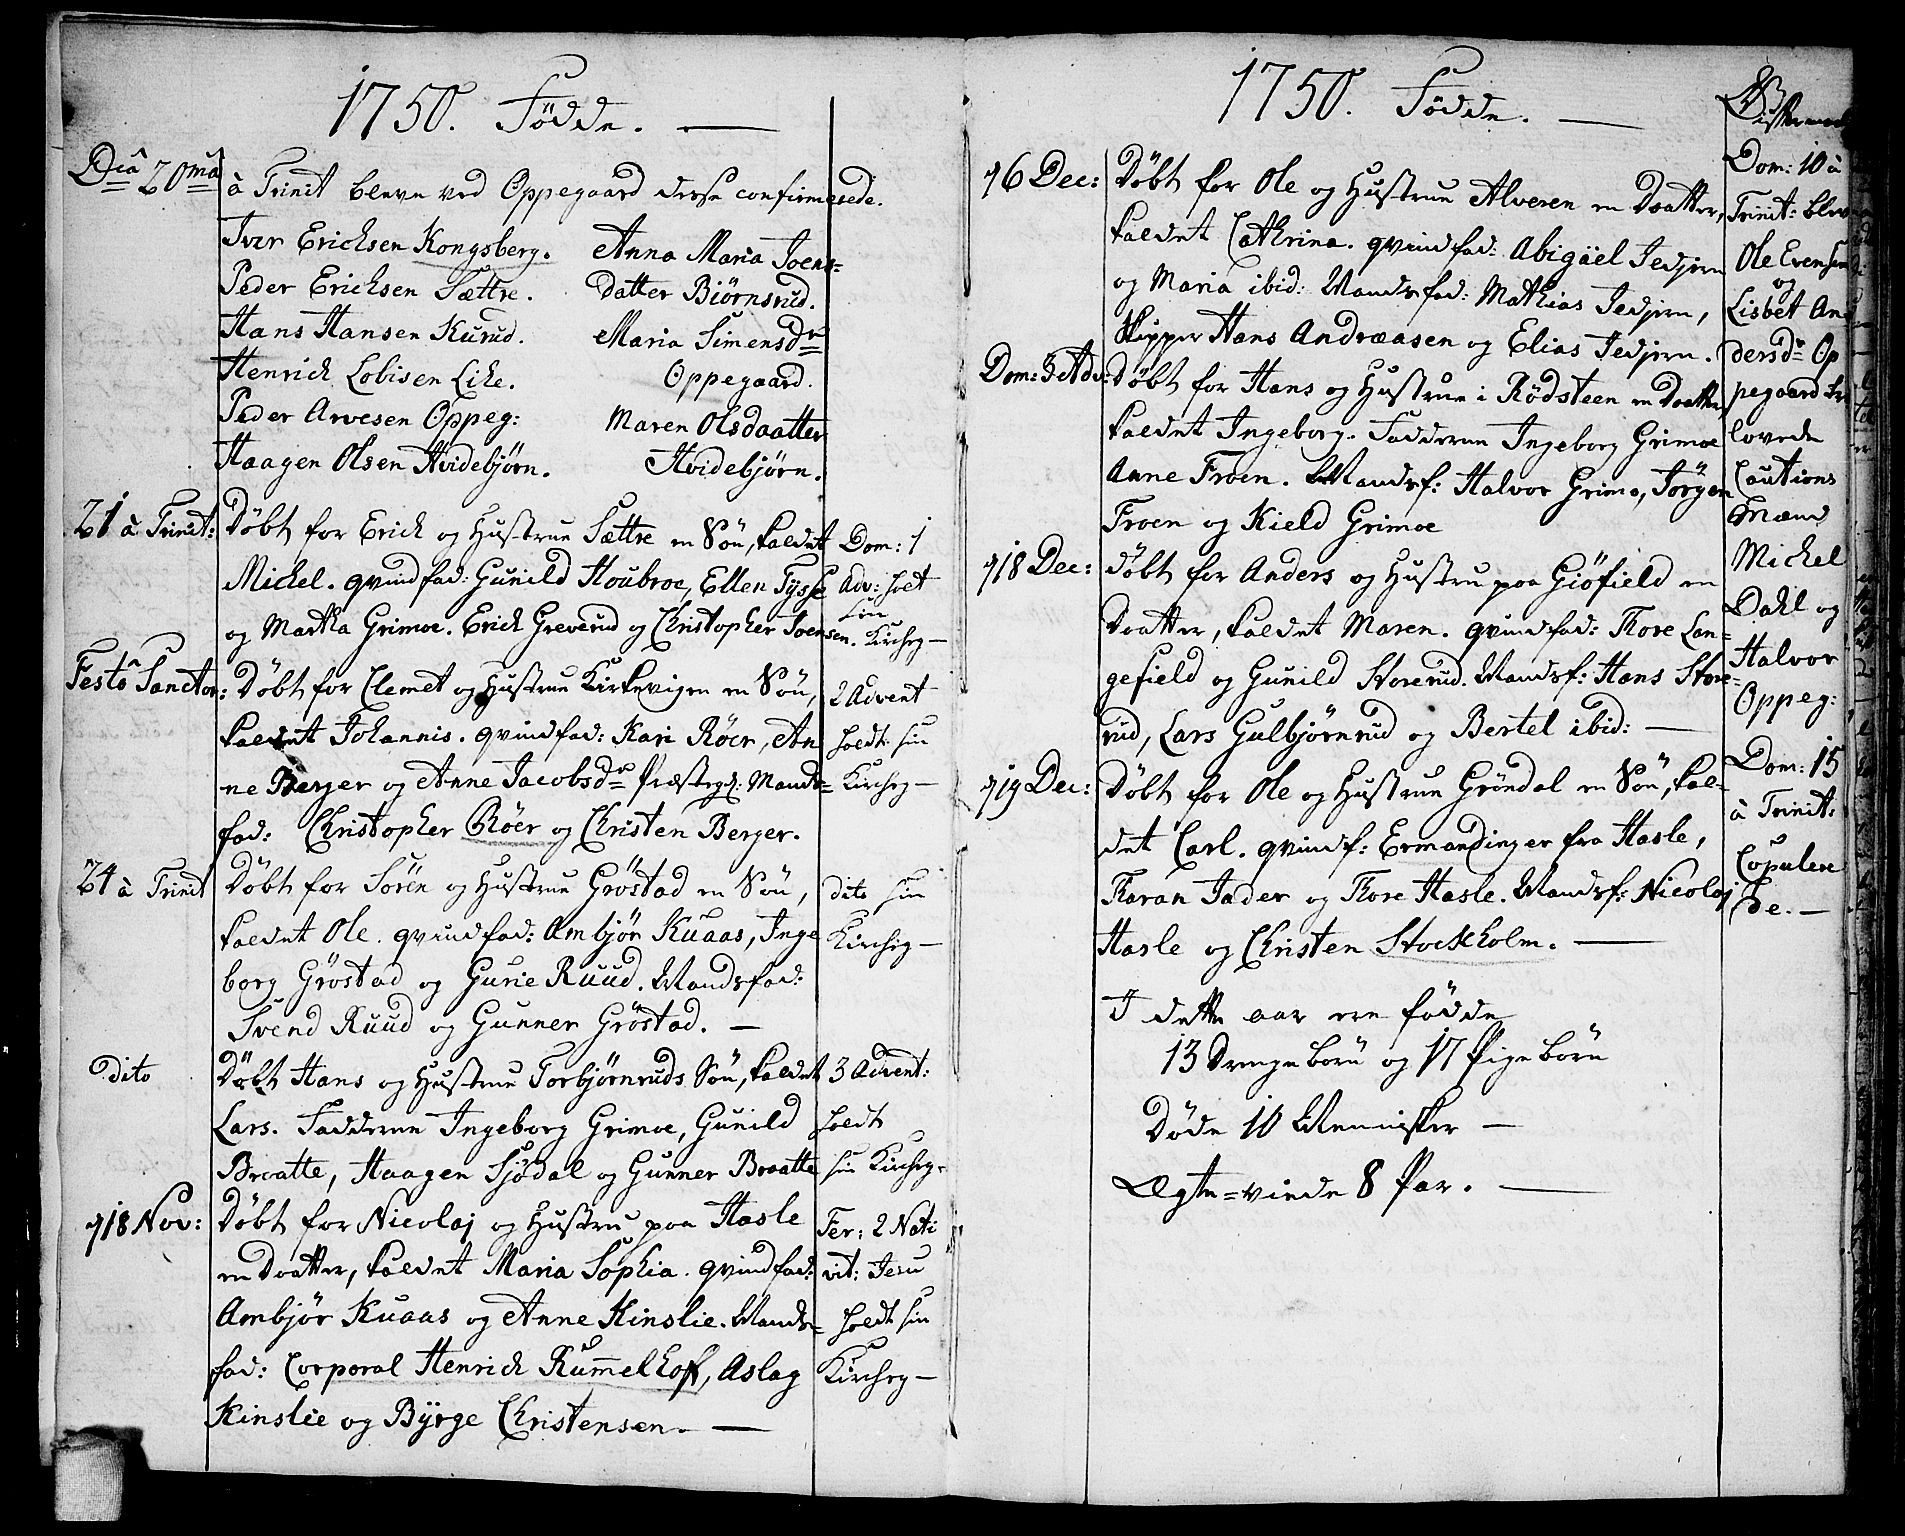 1750. Födde.
Dca 20ma à Trinit bleve ved Oppegaard disse confirmerede.
Iver Erichsen Kongsberg. Anna Maria Joens=
Peder Erichsen Sættre. datter Biörnsrud.
Hans Hansen Kurud. Maria Simensdr
Henrich Lobisen Lihe. Oppegaard.
Peder Arvesen Oppeg: Maren Olsdaatter
Haagen Olsen Hvidebjörn. Hvidebjörn.
21 à Trinit: Döbt for Erich og Hustrue Sættre en Sön, kaldet
Michel. qvindfad: Gunild Houbroe, Ellen Tysse
og Martha Grimoe. Erich Greverud og Christopher Joensen.
Dom: 1
Adv: holt
sin
Kirchg-
Festo Sanctor: Döbt for Clemet og Hustrue Kirkevigen en Sön,
kaldet Johannis. qvindfad: Kari Röer, An
ne Berger og Anne Jacobsdr Præstegd: Mands=
fad: Christopher Röer og Christen Berger.
2 Advent
holdt sin
Kirchg-
24 à Trinit Döbt for Sören og Hustrue Gröstad en Sön,
kaldet Ole. qvindfad: Ambjör Kuaas, Inge
borg Gröstad og Gurie Ruud. Mandsfad:
Svend Ruud og Gunner Gröstad. -
dito sin
Kirchg-
Dito Döbt Hans og Hustrue Torbjörnruds Sön, kaldet
Lars. Fadderne Ingeborg Grimoe, Gunild
Braatte, Haagen Sjödal og Gunner Braatte
3 Advent:
holdt
sin Kirchg-
18 Nov: Döbt for Nicolaj og Hustru paa Hasle
en Daatter, kaldet Maria Sophia. qvindfad:
Ambjör Kuaas og Anne Kinslie. Mands=
fad: Corporal Henrich Rummelhof, Aslag
Kinslie og Byrge Christensen. -
Fer: 2 Nati
vit: Jesu
holdt sin
Kirchg-
1750. Födde.
16 Dec: Döbt for Ole og Hustrue Alveren en Daatter,
kaldet Cathrina. qvindfad: Abigäel Jedjern
og Maria ibid: Mandsfad: Mathias Jedjern,
Skipper Hans Andræasen og Elias Jedjern.
Dom: 3 Adv: Döbt for Hans og Hustrue i Rödsteen en Daatter
kaldet Ingeborg. Fadderne Ingeborg Grimoe
Anne Froen. Mandsf: Halvor Grimo, Jörgen
Froen og Kield Grimoe
18 Dec: Döbt for Anders og Hustru paa Giöfield en
Daatter, kaldet Maren. qvindfad: Thore Lan=
gefield og Gunild Storerud. Mandsf: Hans Store=
rud, Lars Gulbjörnrud og Bertel ibid: -
19 Dec: Döbt for Ole og Hustrue Gröndal en Sön, kal-
det Carl. qvindf: Ermandinger fra Hasle,
Karan Jader og Thore Hasle. Mandsf: Nicolaj
Hasle og Christen Stockholm. -
I dette aar ere födde
13 Drengebörn og 17 Pigebörn
Döde 10 Mennisker -
Ægte=viede 8 Par. -
Dom: 10 à
Trinit: blev
Ole Evensen
og
Lisbet An
dersdr Op
pegaard tro
lovede
Cautions
Mænd
Michel
Dahl og
Halvor
Oppeg:
Dom: 15
à Trinit:
Copulere
de. -